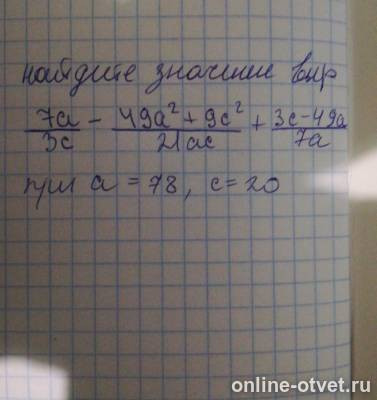 найдите значение выр
7a/3c - 49a²+9c²/21ac + 3c-49a/7a
при a = 78, c=20
online-otvet.ru